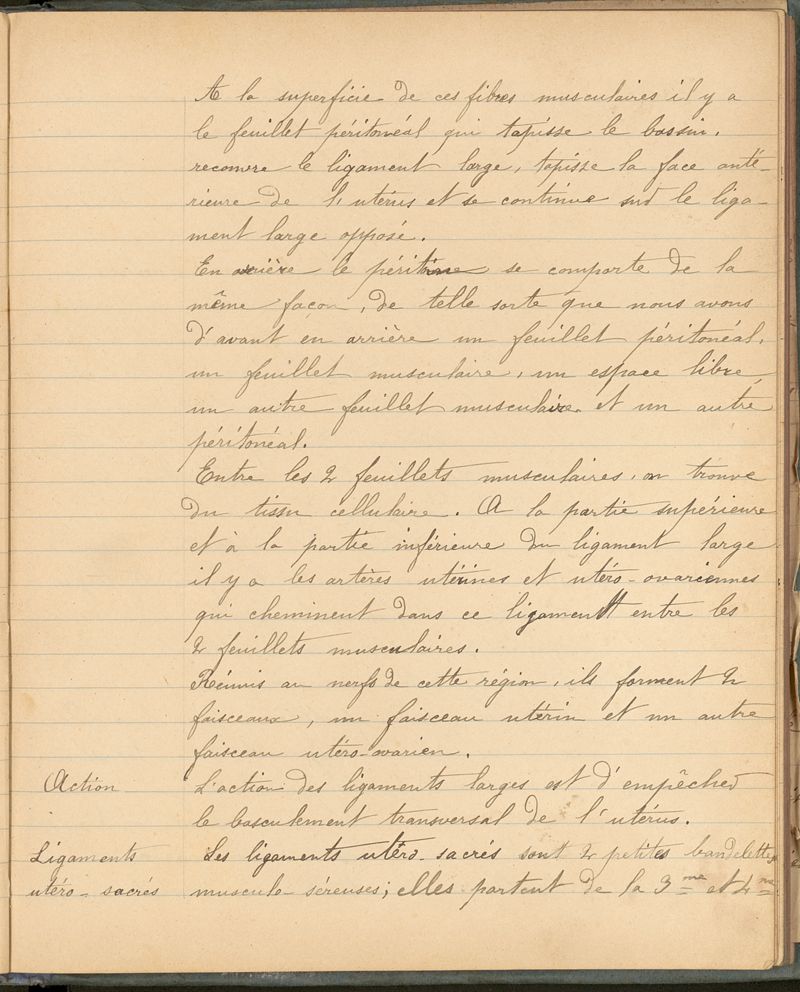 A la superficie de ces fibres musculaires il y a
le feuillet péritonéal qui tapisse le bassin,
recouvre le ligament large, tapisse la face anté-
rieure de l'utérus et se continue sur le liga-
ment large opposé.
En arrière le péritoine se comporte de la
même facon, de telle sorte que nous avons
d'avant en arrière un feuillet péritonéal,
un feuillet musculaire, un espace libre,
un autre feuillet musculaire et un autre
péritonéal.
Entre les 2 feuillets musculaires, on trouve
du tissu cellulaire. A la partie supérieure
et à la partie inférieure du ligament large
il y a les artères utérines et utéro-ovariennes
qui cheminent dans ce ligament entre les
2 feuillets musculaires.
Réunis au nerfs de cette région, ils forment 2
faisceaux, un faisceau utérin et un autre
faisceau utéro-ovarien.
Action L'action des ligaments larges est d'empêcher
le basculement transversal de l'utérus.
Ligaments Les ligaments utéro-sacrés sont 2 petites bandelettes
utéro-sacrés musculo séreuses; elles partent de la 3me et 4me